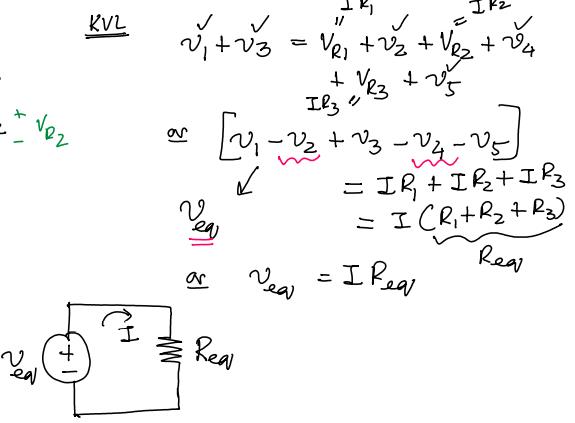 IR₁ IR₂
KVL v₁ + v₃ = V_R1 + v₂ + V_R2 + v₄
+ V_R3 + v₅
IR₃
+ − V_R2
or [v₁ − v₂ + v₃ − v₄ − v₅]
= IR₁ + IR₂ + IR₃
v_eq = I(R₁ + R₂ + R₃)
R_eq
or v_eq = I R_eq
I
v_eq + − R_eq